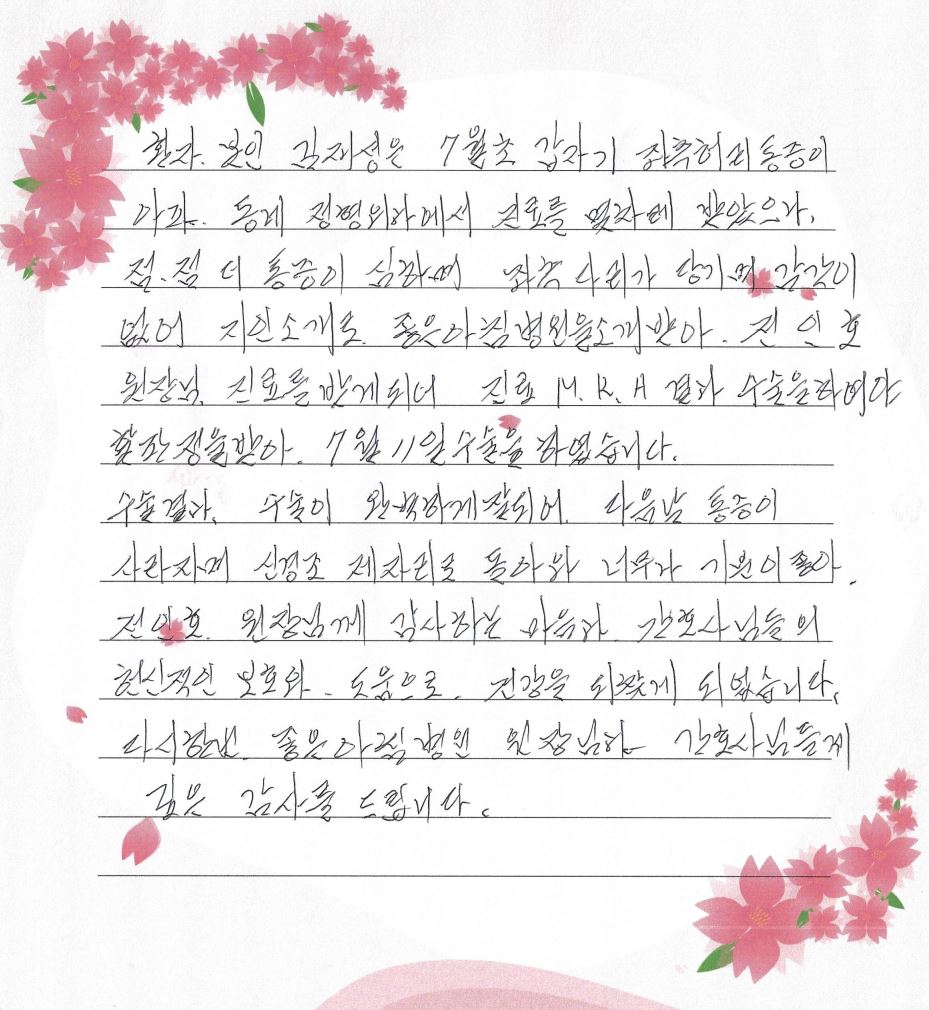 환자. 본인 김재성은 7월초 갑자기 좌측허리통증이
아파. 동네 정형외과에서 진료를 몇차례 받았으나,
점.점 더 통증이 심하며 좌측 다리가 당기며 감각이
없어 지인소개로. 좋은아침병원을소개받아. 전 인 호
원장님, 진료를받게되어 진료 M. R. A 결과 수술을하여야
판정을받아. 7월 11일 수술을 하였습니다.
수술결과, 수술이 완벽하게잘되어. 다음날 통증이
사라지며 신경도 제자리로 돌아와 너무나 기분이 좋아.
전인호. 원장님께 감사하는 마음과. 간호사님들의
헌신적인 보호와. 도움으로. 건강을 되찾게 되었습니다.
다시한번. 좋은아침병원 원장님과 간호사님들께
깊은 감사를 드립니다.